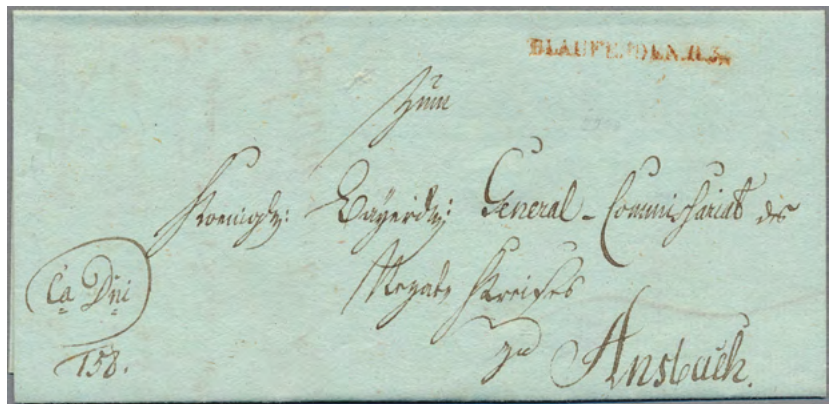 BLAUFELDEN.R.3.
Zum
Koenigl: Bayerisch: General-Commissariat des
Rezat Kreises
zu Ansbach.
Ca Dni
158.